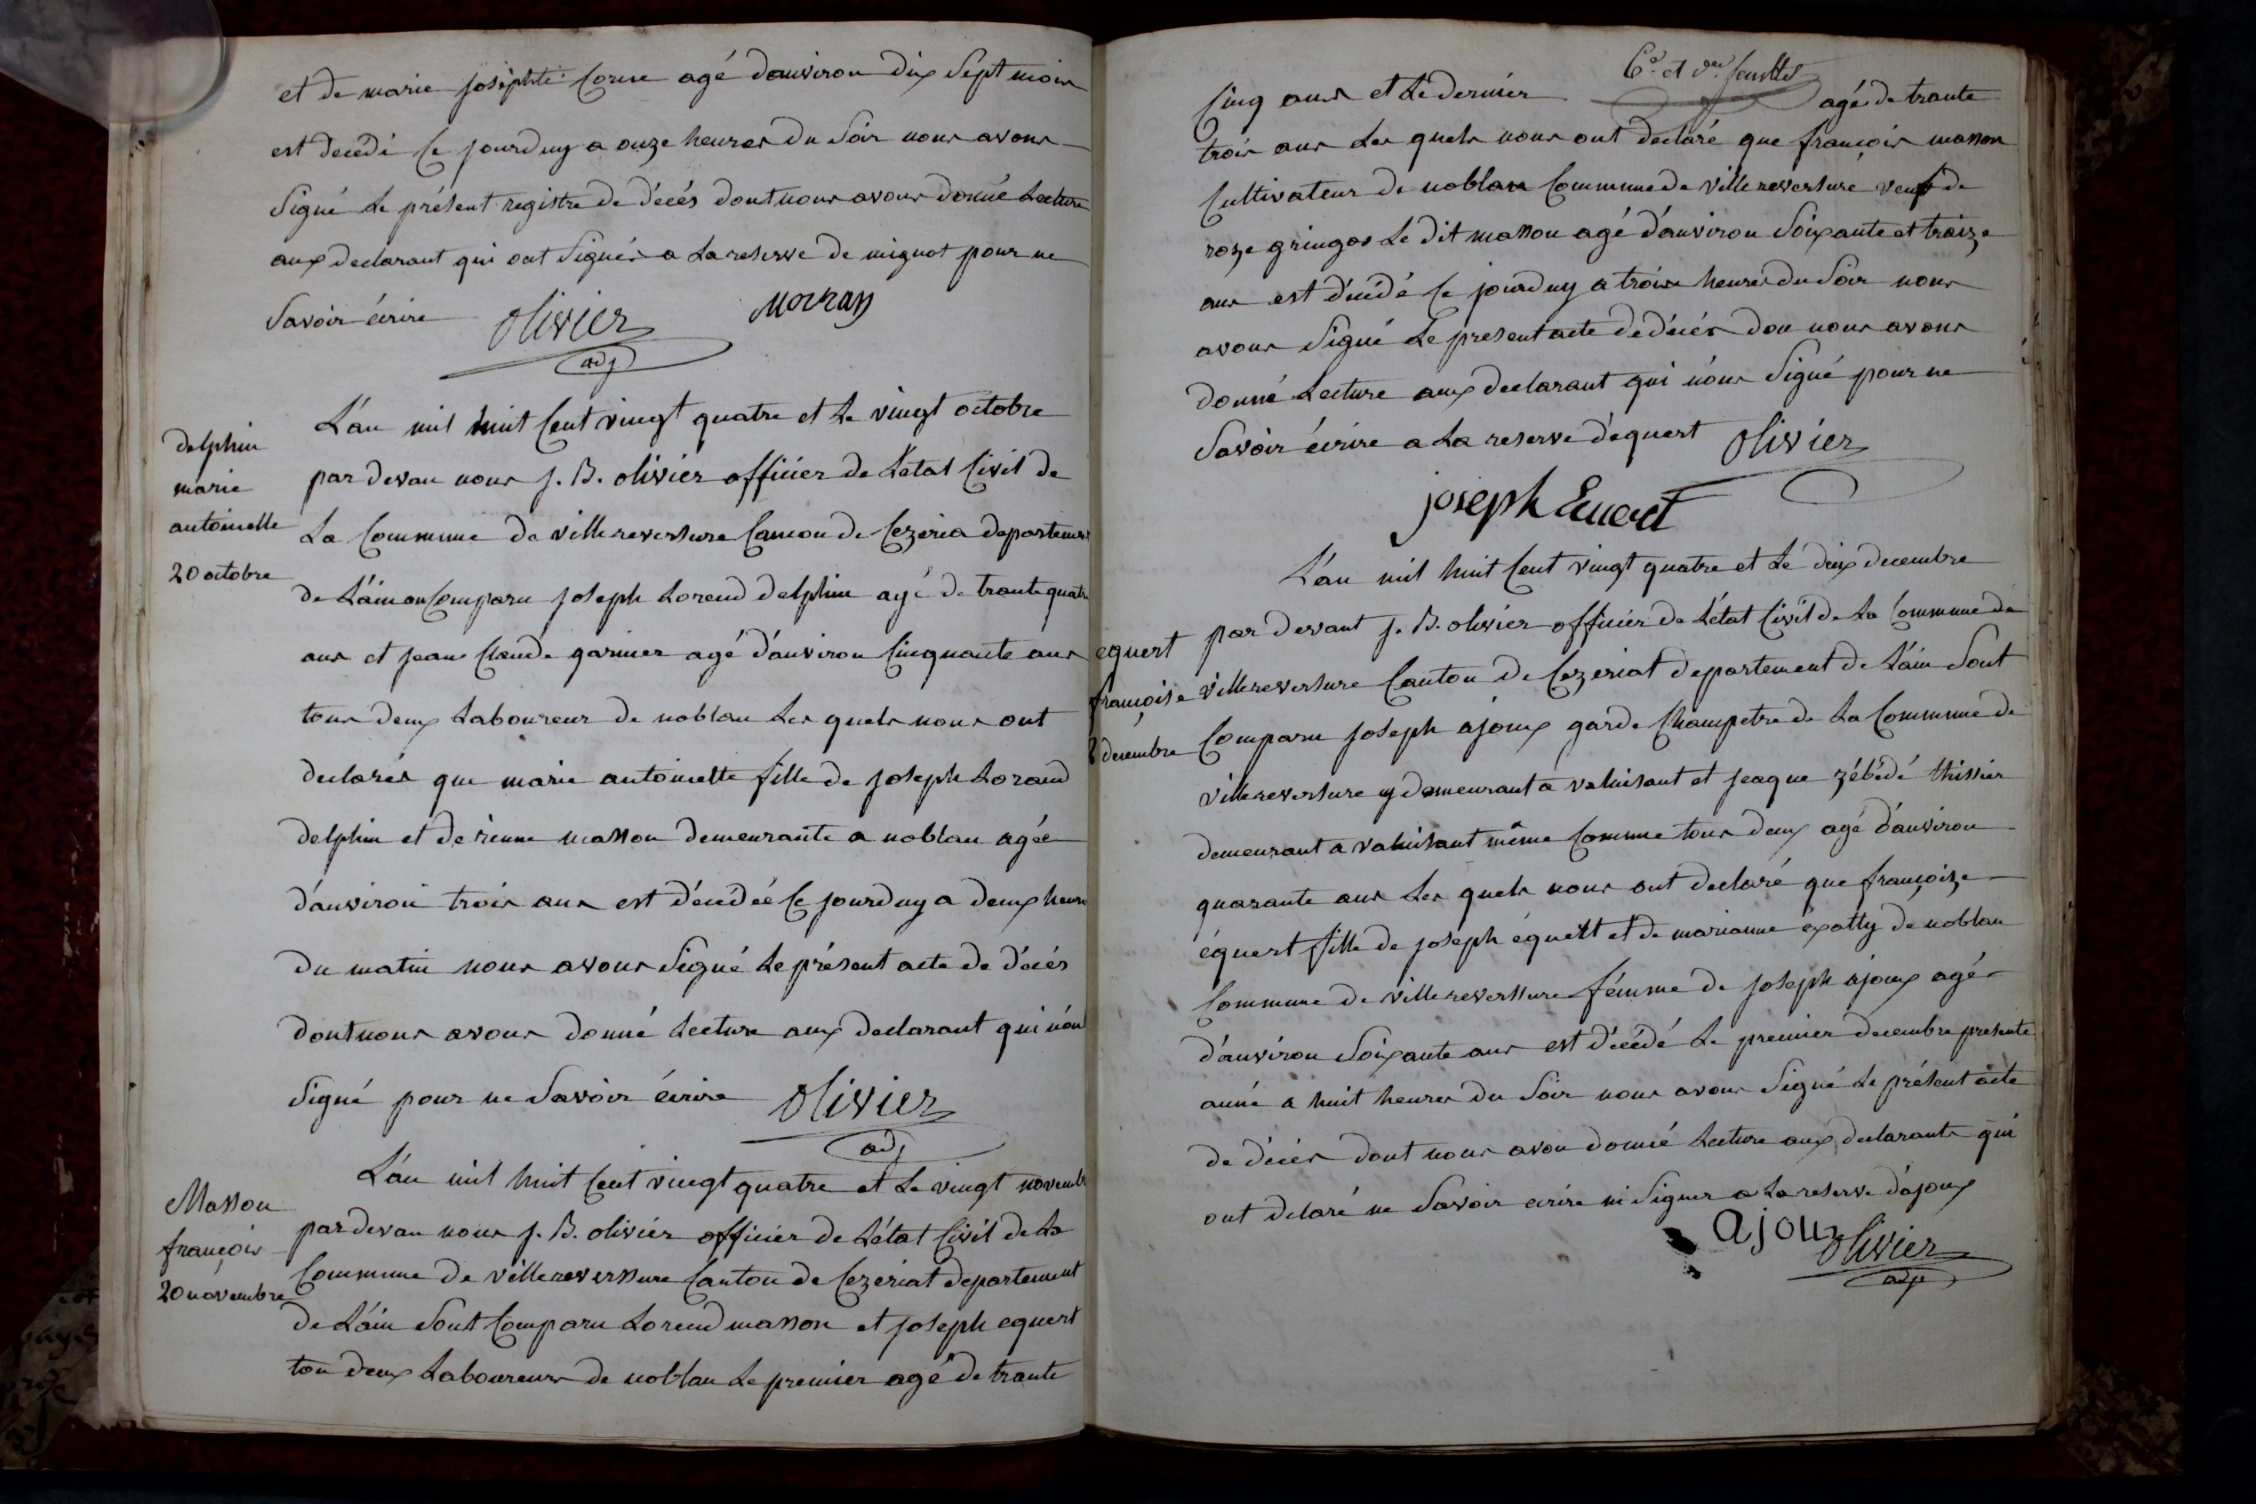 et de marie josephte Corne agé d'anviron dix Sept mois
est decédé Ce jourduy a onze heures du Soir nous avons
Signé Le présent registre de décés dont nous avons donné Lecture
aux declarant qui ont Signés a La reserve de mignot pour ne
Savoir écrire
olivier
adj
Morran
delphin
marie
antoinette
20 octobre
L'an mil huit Cent vingt quatre et Le vingt octobre
par devan nous j. B. olivier officier de L'état Civil de
La Commune de villereversure Canton de Cezeria departement
de L'ain on Comparu joseph Lorend delphin agé de trante quatre
ans et jean Claude garnier agé d'anviron Cinquante ans
tous deux Laboureur de noblan Les quels nous ont
declarés que marie antoinette fille de joseph Lorand
delphin et de rienne masson demeurante a noblan agée
d'anviron trois ans est décédée Ce jourduy a deux heure
du matin nous avons Signé Le présent acte de décés
dont nous avons donné Lecture aux declarant qui n'on
Signé pour ne Savoir écrire
olivier
adj
Masson
françois
20 novembre
L'an mil huit Cent vingt quatre et Le vingt novembre
par devan nous j. B. olivier officier de L'état Civil de La
Commune de villereverssure Canton de Cezeriat departement
de L'ain Sont Comparu Lorend masson et joseph equert
tou deux Laboureurs de noblan Le premier agé de trante
6e. et der. feuillet
Cinq ans et Le dernier agés de trante
trois ans Les quels nous ont declaré que françois masson
Cultivateur de noblan Commune de villereversure veuf de
roze gringos Le dit masson agé d'anviron Soixante et traize
ans est décédé Ce jourduy a trois heures du Soir nous
avons Signé Le present acte de décés don nous avons
donné Lecture aux declarant qui n'ons Signé pour ne
Savoir écrire a La reserve d'equert
olivier
joseph Euert
equert
françoise
2 decembre
L'an mil huit Cent vingt quatre et Le deux decembre
par devant j. B. olivier officier de L'état Civil de La Commune de
villereversure Canton de Cezeriat departement de L'ain Sont
Comparu joseph ajoux garde Champetre de La Commune de
villereversure y demeurant a valuisant et jeaque zébédé thissier
demeurant a valuisant même Comune tous deux agé d'anviron
quarante ans Les quels nous ont declaré que françoize
équert fille de joseph équert et de marianne expatty de noblan
Commune de villereverssure fémme de joseph ajoux agé
d'anviron Soixante ans est décédé Le premier decembre presente
anné a huit heures du Soir nous avons Signé Le présent acte
de décés dont nous avon donné Lecture aux declarants qui
ont delaré ne Savoir ecrire ni Signer a La reserve d'ajoux
ajoux
olivier
adj